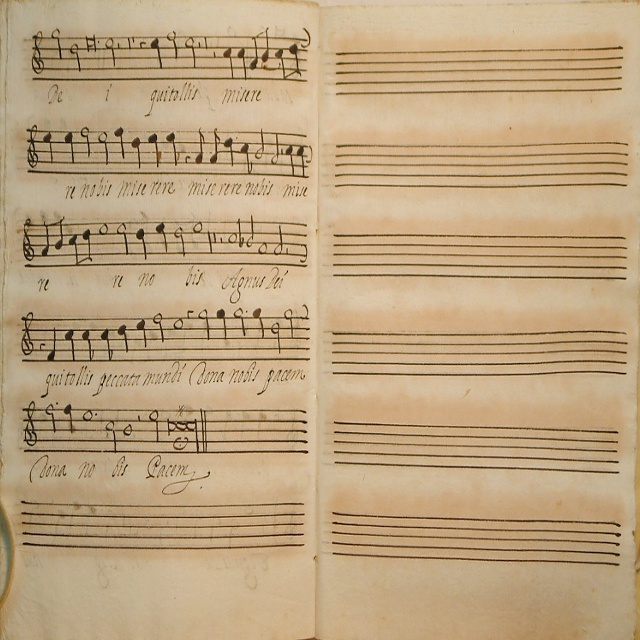 De i quitollis misere
re nobis mise rere miserere nobis mise
re re no bis Agnus Dei
quitollis peccata mundi Dona nobis pacem
Dona no bis Pacem